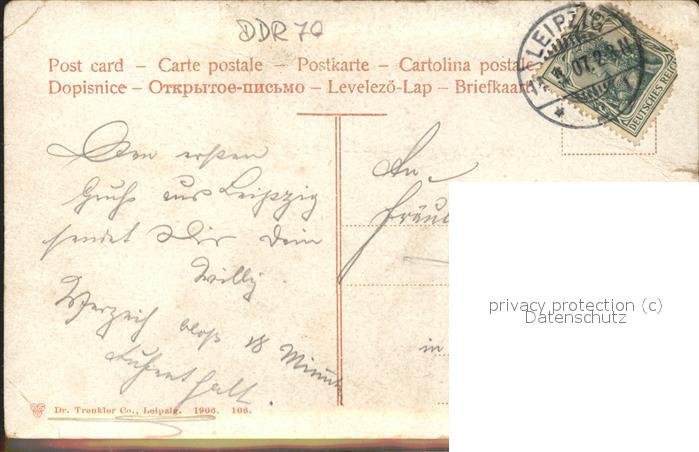 DDR 70
Post card – Carte postale – Postkarte – Cartolina postale
Dopisnice – Открытое-письмо – Levelező-Lap – Briefkaart
LEIPZIG
07.2-3.N
1
DEUTSCHES REI
Den ersten
Gruß aus Leipzig
sendet Dir Dein
Willy.
Verzeih bloß 18 Minut
Aufenthalt.
An
Fräu
in
privacy protection (c)
Datenschutz
Dr. Trenkler Co., Leipzig. 1906. 106.